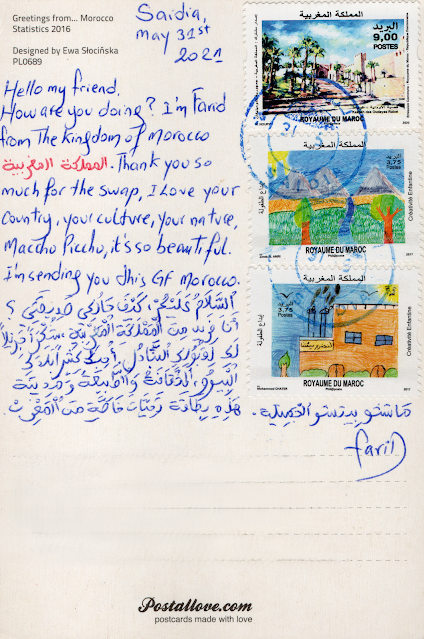 Greetings from... Morocco
Statistics 2016
Designed by Ewa Słocińska
PL0689
Saidia,
May 31st
2021
Hello my friend.
How are you doing? I'm Farid
from The Kingdom of Morocco
المملكة المغربية. Thank you so
much for the swap, I Love your
Country, your culture, your nature,
Macchu Picchu, it's so beautiful.
I'm sending you this GF Morocco.
السلام عليكم، كيف حالكي صديقتي؟
أنا فريد من المملكة المغربية، شكرا جزيلا
لكي التبادل أحب كثيرا بلدكي
البيرو، الثقافة والطبيعة ومدينة
ماتشو بيتشو الجميلة.
هذه بطاقة من المغرب.
farid
المملكة المغربية
البريد
9,00
POSTES
ROYAUME DU MAROC
المملكة المغربية
البريد
3,75
Postes
إبداع الطفولة
ROYAUME DU MAROC
2017
Créativité Enfantine
المملكة المغربية
3,75
Postes
إبداع الطفولة
ROYAUME DU MAROC
2017
Créativité Enfantine
Postallove.com
postcards made with love